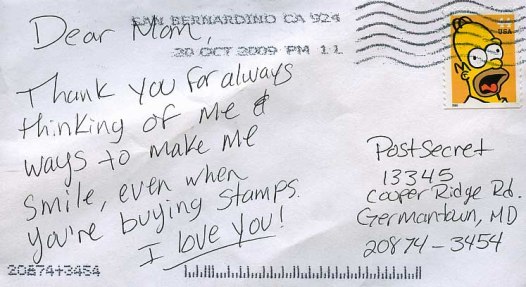 SAN BERNARDINO CA 924
20 OCT 2009 PM 1 L
Dear Mom,
Thank you for always
thinking of me &
ways to make me
smile, even when
you're buying stamps.
I love you!
USA
PostSecret
13345
Copper Ridge Rd.
Germantown, MD
20874-3454
20874+3454